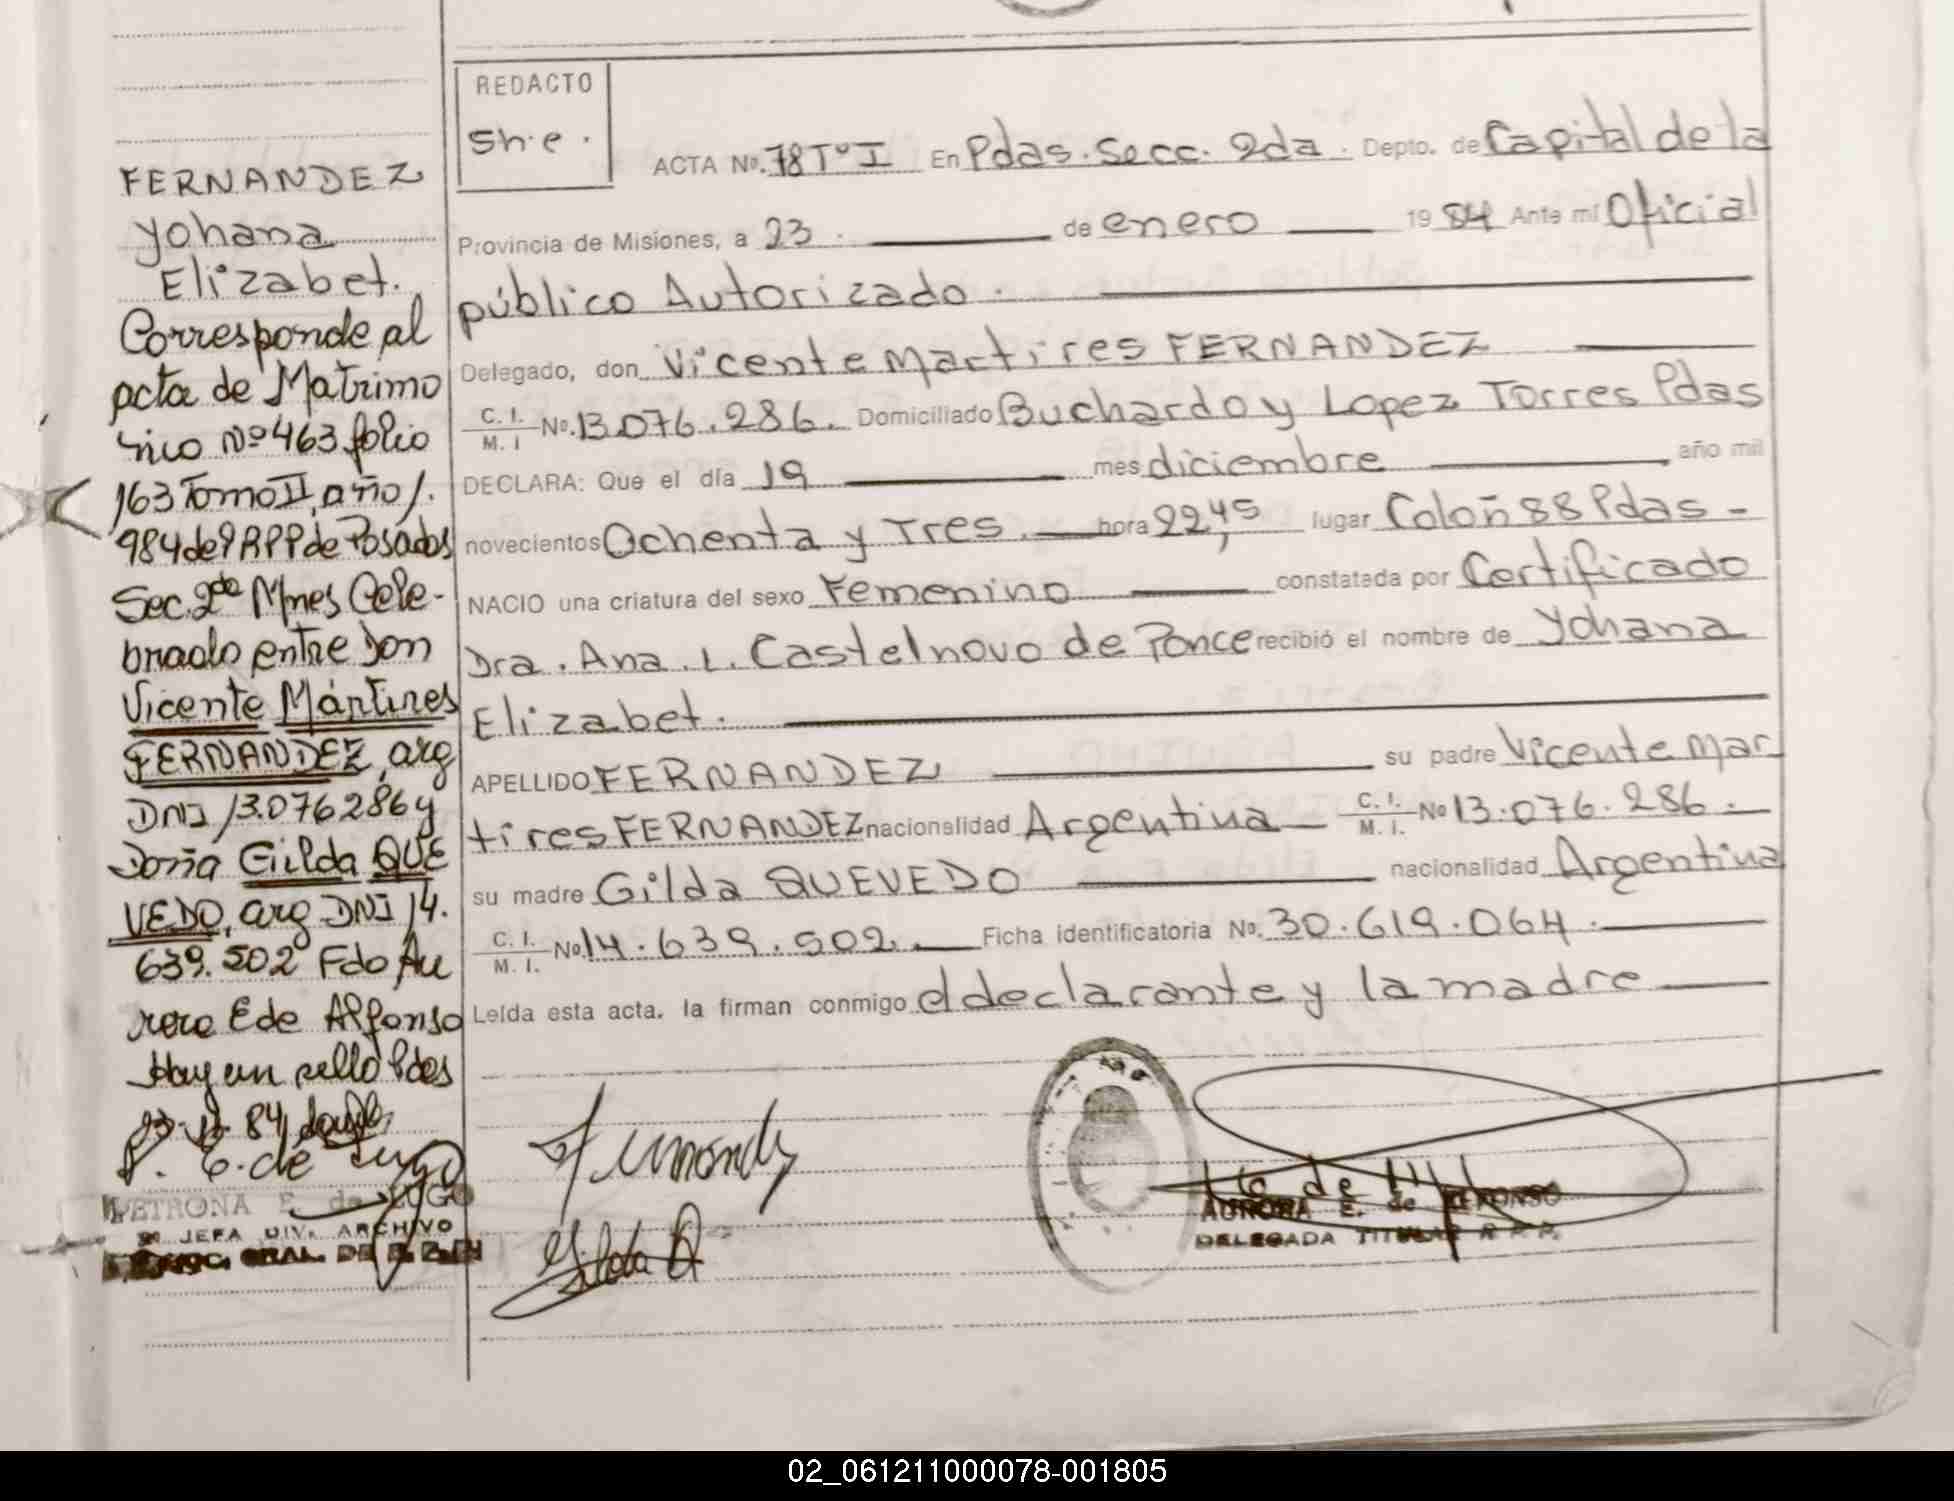 FERNANDEZ
Yohana
Elizabet.
Corresponde al
acta de Matrimo
nio Nº 463 folio
163 Tomo II, año 1.
984 del RPP de Posadas
Sec. 2da Mnes Cele-
brado entre Don
Vicente Mártires
FERNANDEZ, arg
DNI 13.076286 y
Doña Gilda QUE
VEDO, arg DNI 14.
639.502 Fdo Au
rora E de Alfonso
Hay un sello Pdas
84
P. E. de Lugo
PETRONA E. de LUGO
JEFA DIV. ARCHIVO
GRAL. DE
REDACTO
Sh.e.
ACTA Nº. 78 Tº I En Pdas. Secc. 2da. Depto. de Capital de la
Provincia de Misiones, a 23. de enero 19 84 Ante mí Oficial
público Autorizado.
Delegado, don Vicente Martires FERNANDEZ
C. I. / M. I No. 13.076.286. Domiciliado Buchardo y Lopez Torres Pdas
DECLARA: Que el día 19 mes diciembre año mil
novecientos Ochenta y Tres. hora 22,45 lugar Colón 88 Pdas -
NACIO una criatura del sexo Femenino constatada por Certificado
Dra. Ana. L. Castelnovo de Ponce recibió el nombre de Yohana
Elizabet.
APELLIDO FERNANDEZ su padre Vicente Mar
tires FERNANDEZ nacionalidad Argentina C. I. / M. I. No 13.076.286.
su madre Gilda QUEVEDO nacionalidad Argentina
C. I. / M. I. No. 14.639.502. Ficha identificatoria No. 30.619.064.
Leída esta acta. la firman conmigo el declarante y la madre
Gilda Q
AURORA E. de ALFONSO
DELEGADA TITULAR R. P. P.
02_061211000078-001805